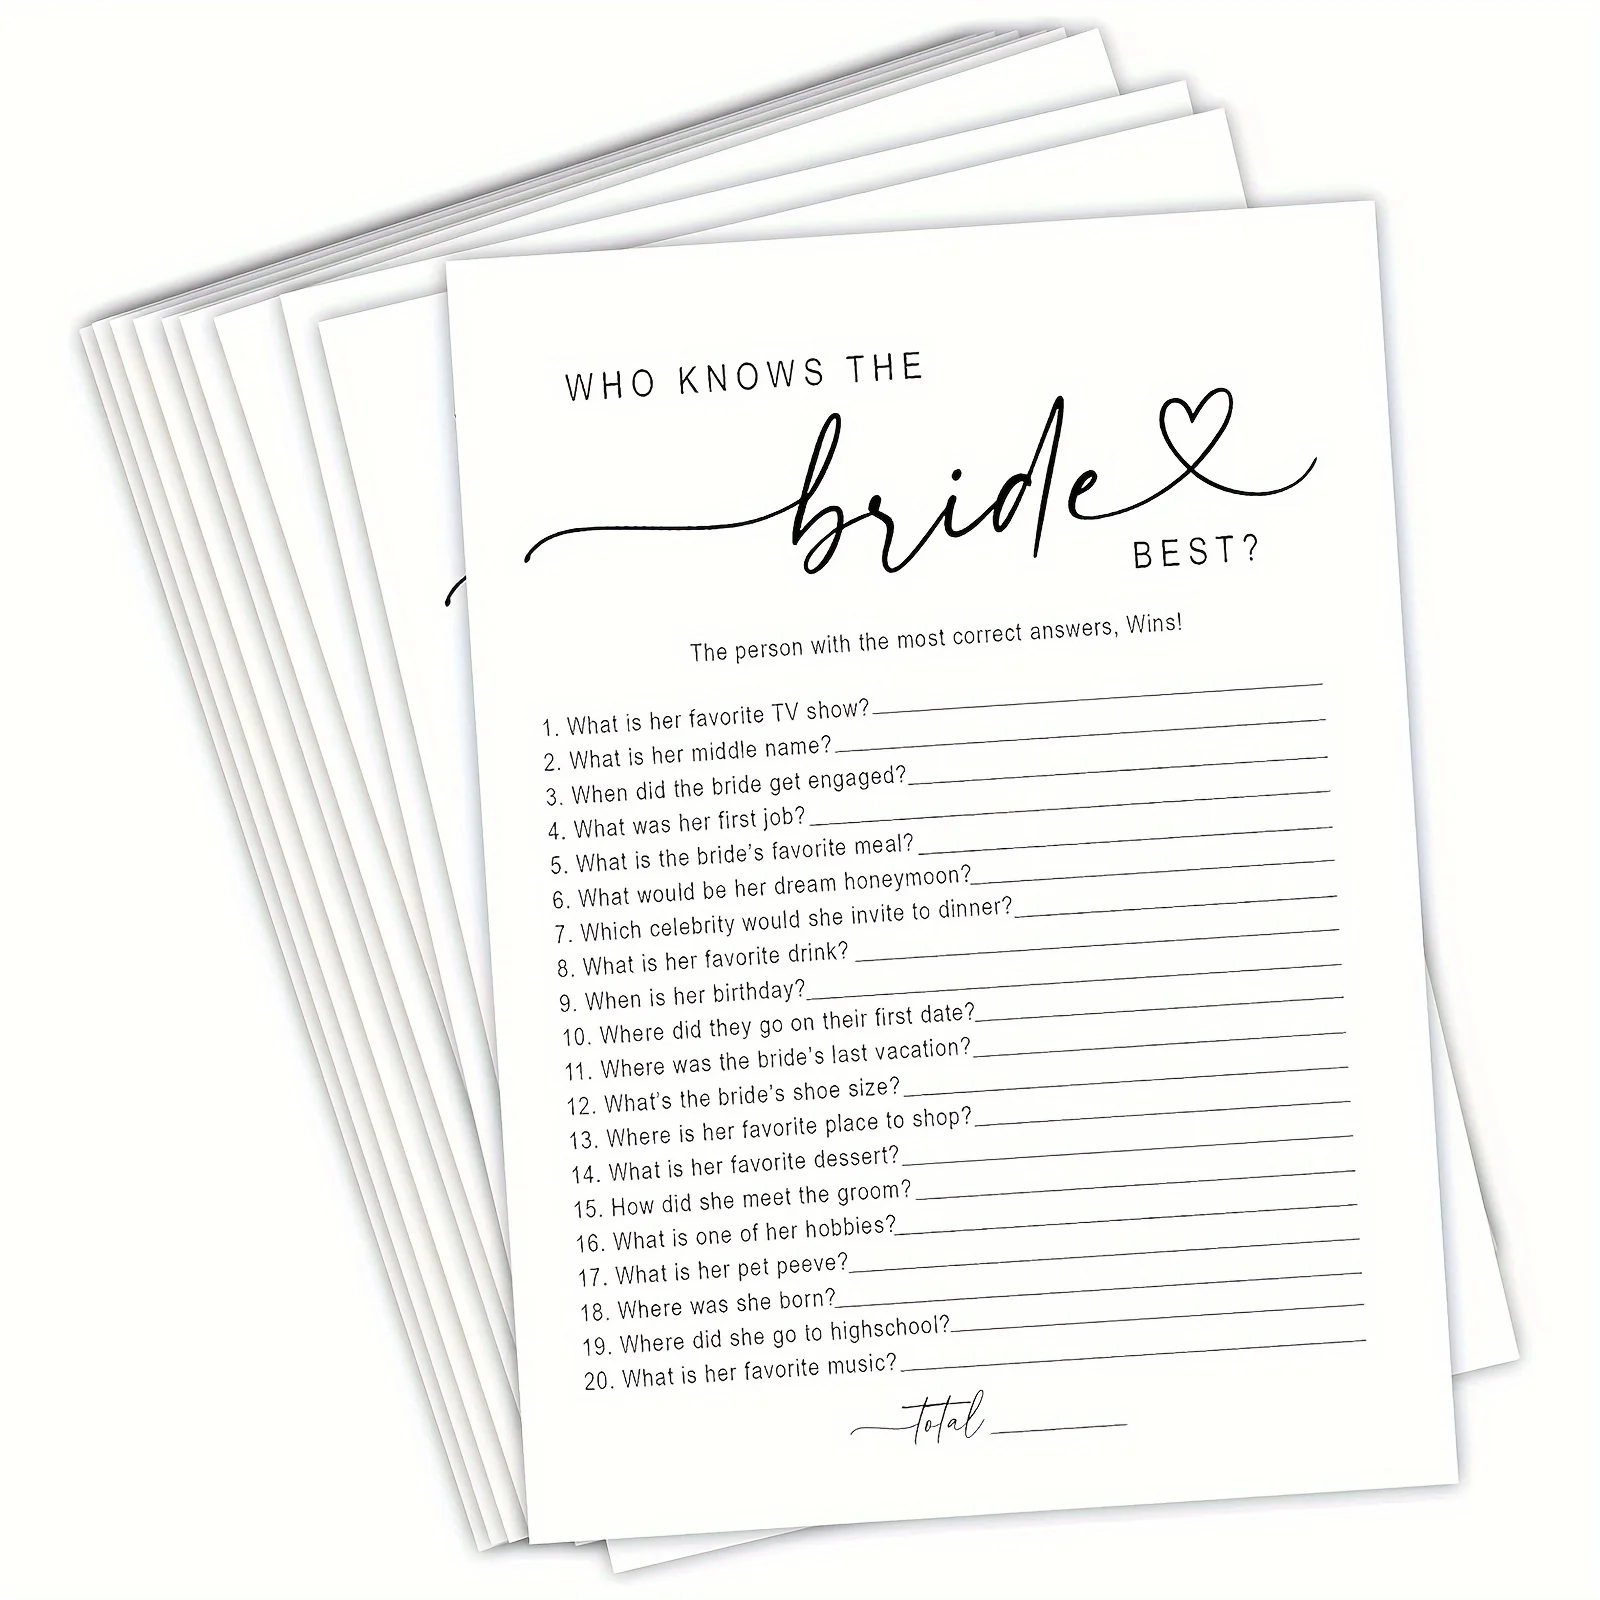 WHO KNOWS THE
bride
BEST?
The person with the most correct answers, Wins!
1. What is her favorite TV show?
2. What is her middle name?
3. When did the bride get engaged?
4. What was her first job?
5. What is the bride's favorite meal?
6. What would be her dream honeymoon?
7. Which celebrity would she invite to dinner?
8. What is her favorite drink?
9. When is her birthday?
10. Where did they go on their first date?
11. Where was the bride's last vacation?
12. What's the bride's shoe size?
13. Where is her favorite place to shop?
14. What is her favorite dessert?
15. How did she meet the groom?
16. What is one of her hobbies?
17. What is her pet peeve?
18. Where was she born?
19. Where did she go to highschool?
20. What is her favorite music?
total